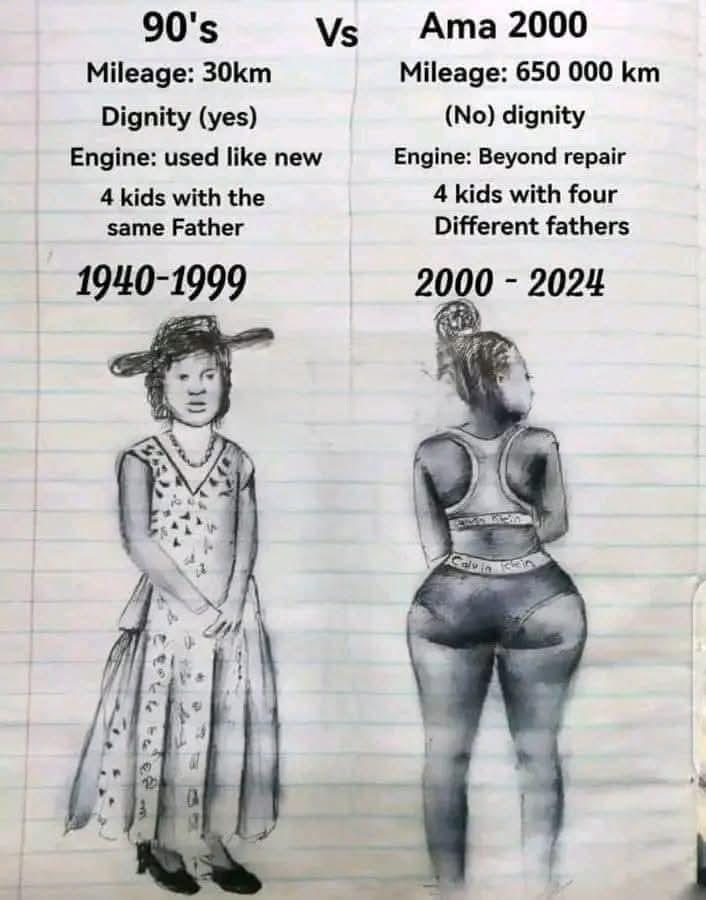 90's Vs Ama 2000
Mileage: 30km
Dignity (yes)
Engine: used like new
4 kids with the
same Father
1940-1999
Mileage: 650 000 km
(No) dignity
Engine: Beyond repair
4 kids with four
Different fathers
2000 - 2024
Calvin Klein
Calvin Klein